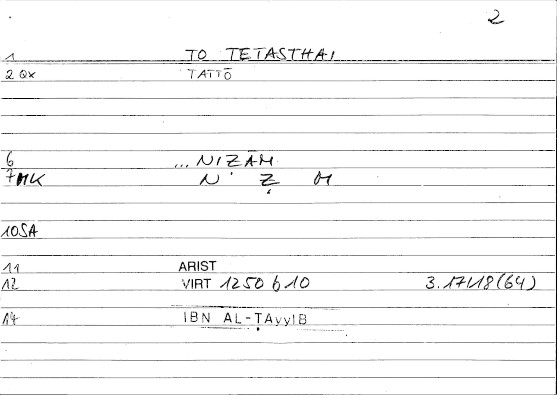 2
1 TO TETASTHAI
2 QX TATTŌ
6 ... NIẒĀM
7 MK N Ẓ M
10SA
11 ARIST
12 VIRT 1250 b 10 3.17/18 (64)
14 IBN AL-ṬAyyIB